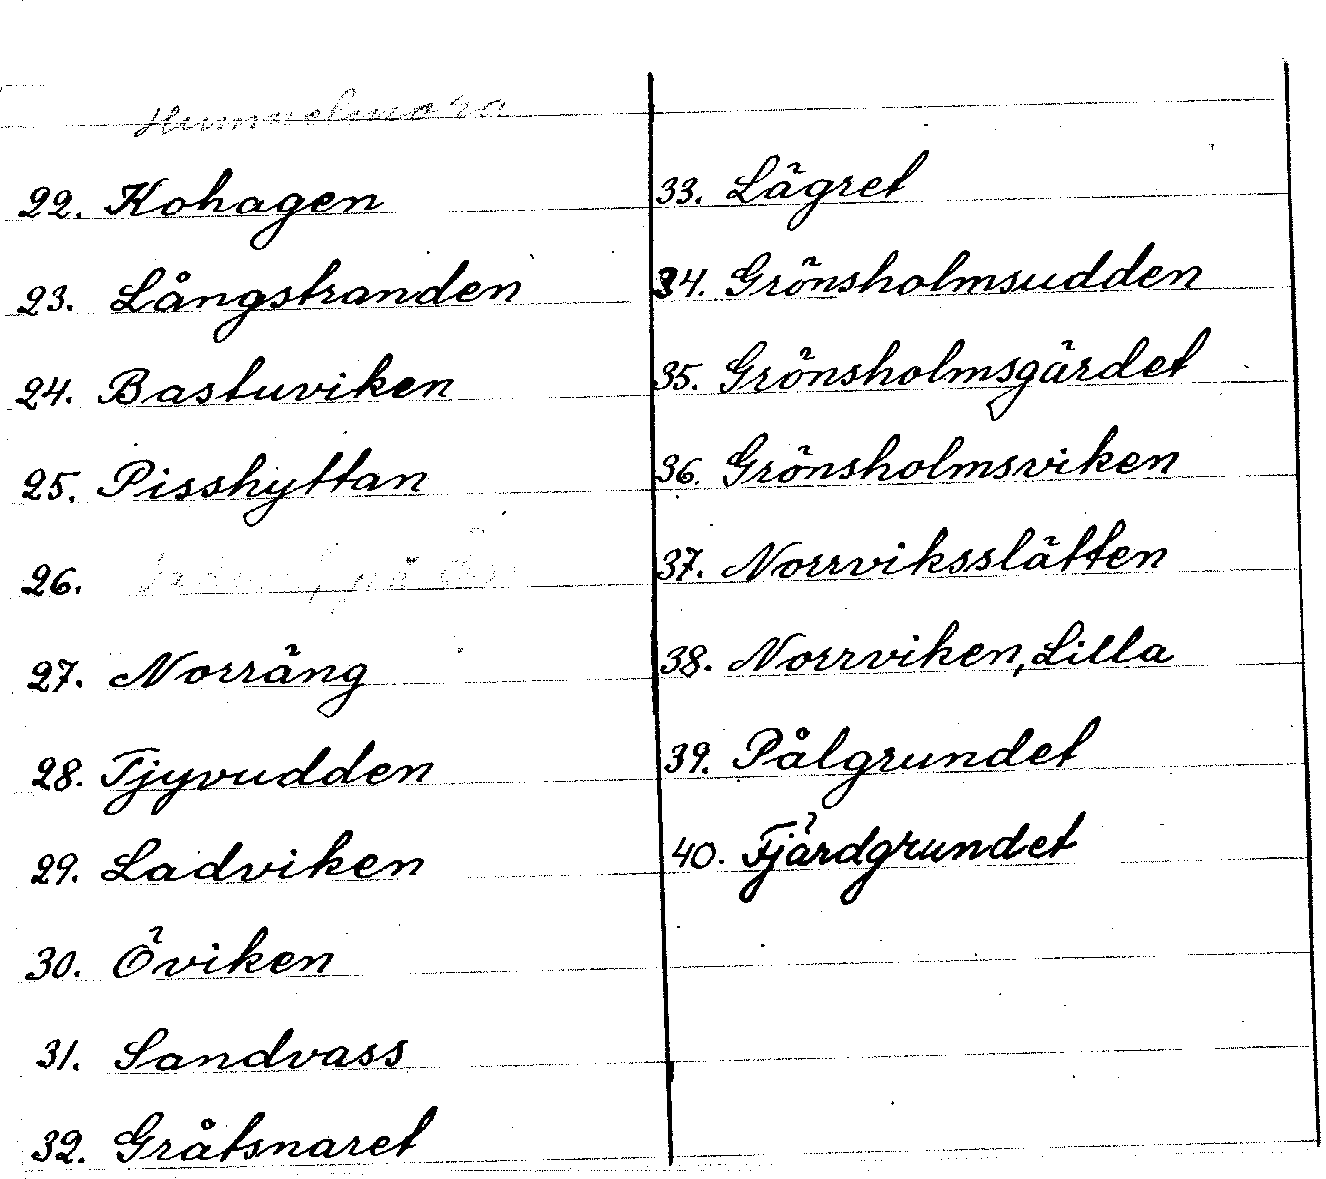 Hummelmora
22. Kohagen
23. Långstranden
24. Bastuviken
25. Pisshyttan
26.
27. Norräng
28. Tjyvudden
29. Ladviken
30. Öviken
31. Sandvass
32. Gråtsnaret
33. Lägret
34. Grönsholmsudden
35. Grönsholmsgärdet
36. Grönsholmsviken
37. Norrviksslätten
38. Norrviken, Lilla
39. Pålgrundet
40. Fjärdgrundet